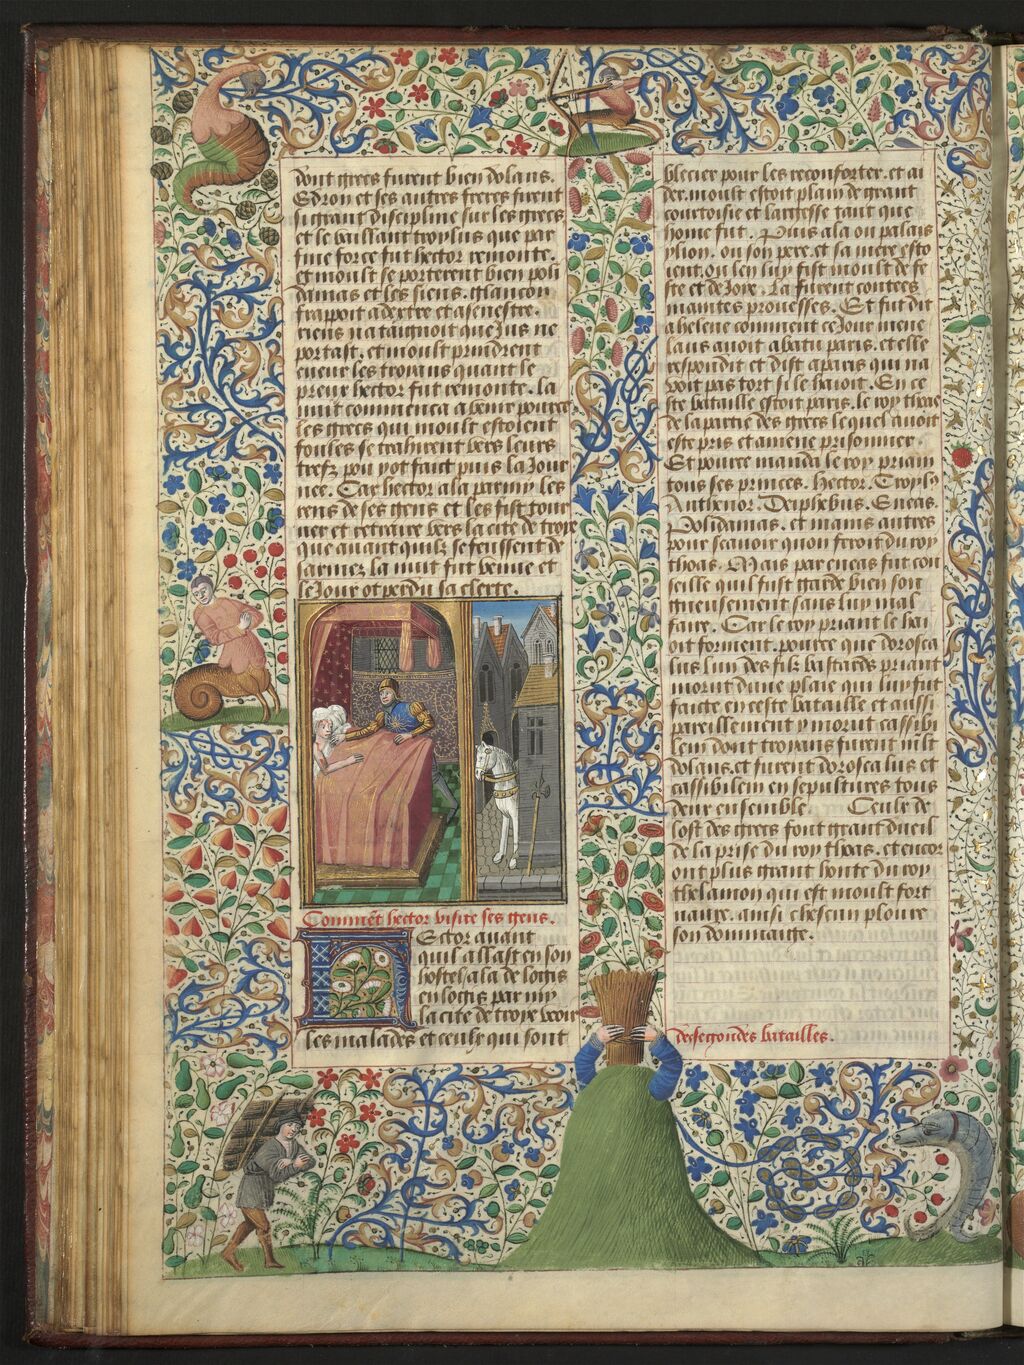 dont grecs furent bien dolans.
Edron et ses autres freres firent
si grant discipline sur les grecs
et le vaillant troylus que par
fine force fut hector remonte.
et moult se porterent bien poli
damas et les siens. Glancon
frapoit a dextre et a senestre.
riens nataignoit que Jus ne
portast. et moult prindrent
cueur les troyans quant le
preux hector fut remonte. la
nuit commenca a venir pource
les grecs qui moult estoient
foules se trahirent vers leurs
trefz pou y ot faut puis la Jour
nee. Car hector ala parmy les
rens de ses gens et les fist tour
ner et retraire vers la cite de troye
que auant quilz se feussent de
sarmez la nuit fut venue et
le Jour ot perdu sa clerte.
Comment hector visite ses gens.
Hector auant
quil allast en son
hostel ala de loctis
en loctis par my
la cite de troye veoir
les malades et ceulx qui sont
blecier pour les reconforter. et ai
der. moult estoit plain de grant
courtoisie et largesse tant que
home fut. Puis ala ou palais
ylion. ou son pere et sa mere esto
ient. ou len luy fist moult de fe
ste et de Joye. La furent contees
maintes prouesses. Et fut dit
a helene comment ce Jour mene
laus auoit abatu paris. et elle
respondit et dist a paris qui na
voit pas tort si le haioit. En ce
ste bataille estoit paris. le roy thoas
de la partie des grecs lequel auoit
este pris et amene prisonnier.
Et pource manda le roy priam
tous ses princes. Hector. Troylus
Anthenor. Deiphebus. Eneas.
Polidamas. et mains autres
pour scauoir quon feroit du roy
thoas. Mais par eneas fut con
seille quil fust garde bien son
gneusement sans luy mal
faire. Car le roy priant le ha
oit forment. pource que dorosca
lus lun des filz bastards priant
morut dune plaie qui luy fut
faicte en ceste bataille et aussi
pareillement y morut cassibi
len dont troyans furent mlt
dolans. et furent doroscalus et
cassibulem en sepultures tous
deux ensemble. Ceulx de
lost des grecs font grant dueil
de la prise du roy thoas. et encor
ont plus grant honte du roy
thelamon qui est moult fort
naure. ainsi chescun ploure
son dommaige.
des secondes batailles.